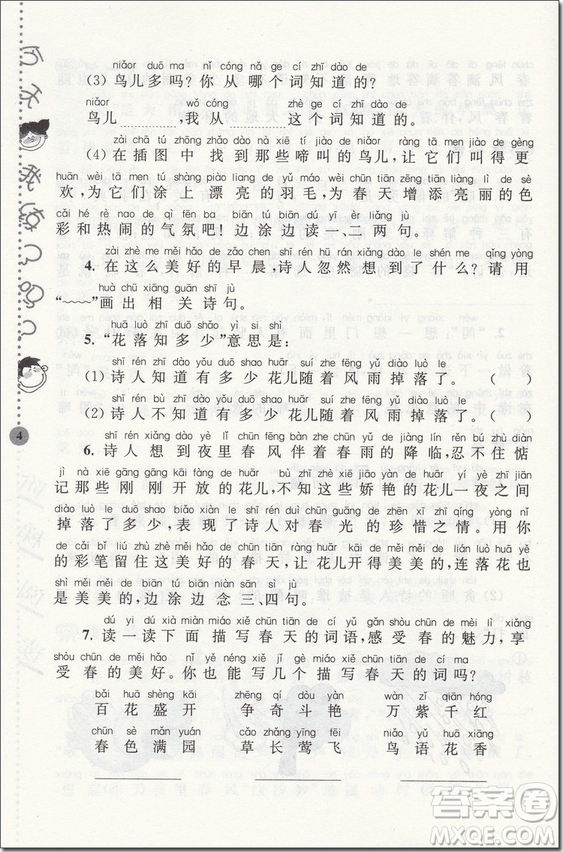 niǎor duō ma nǐ cóng nǎ gè cí zhī dào de
(3) 鸟儿多吗?你从哪个词知道的?
niǎor wǒ cóng zhè ge cí zhī dào de
鸟儿 ,我从 这个词知道的。
zài chā tú zhōng zhǎo dào nà xiē tí jiào de niǎor ràng tā men jiào de gèng
(4) 在插图中找到那些啼叫的鸟儿,让它们叫得更
huān wèi tā men tú shàng piào liang de yǔ máo wèi chūn tiān zēng tiān liàng lì de sè
欢,为它们涂上漂亮的羽毛,为春天增添亮丽的色
cǎi hé rè nao de qì fēn ba biān tú biān dú yī èr liǎng jù
彩和热闹的气氛吧!边涂边读一、二两句。
zài zhè me měi hǎo de zǎo chén shī rén xiǎng dào le shén me qǐng yòng
4. 在这么美好的早晨,诗人想到了什么?请用
huà chū xiāng guān shī jù
“﹏﹏”画出相关诗句。
huā luò zhī duō shǎo yì si shì
5. “花落知多少”意思是:
shī rén zhī dào yǒu duō shǎo huā ér suí zhe fēng yǔ diào luò le
(1) 诗人知道有多少花儿随着风雨掉落了。 ( )
shī rén bù zhī dào yǒu duō shǎo huā ér suí zhe fēng yǔ diào luò le
(2) 诗人不知道有多少花儿随着风雨掉落了。( )
shī rén xiǎng dào yè lǐ chūn fēng bàn zhe chūn yǔ de jiàng lín rěn bú zhù diàn
6. 诗人想到夜里春风伴着春雨的降临,忍不住惦
jì nà xiē gāng gāng kāi fàng de huār bù zhī zhè me jiāo yàn de huār yī yè zhī jiān
记那些刚刚开放的花儿,不知这么娇艳的花儿一夜之间
diào luò le duō shao biǎo xiàn le shī rén duì chūn guāng de zhēn xī zhī qíng yòng nǐ
掉落了多少,表现了诗人对春光的珍惜之情。用你
de cǎi bǐ liú zhù zhè měi hǎo de chūn tiān ràng huār kāi de měi měi de lián luò huā yě
的彩笔留住这美好的春天,让花儿开得美美的,连落花也
shì měi měi de biān tú biān niàn sān sì jù
是美美的,边涂边念三、四句。
dú yi dú xià miàn miáo xiě chūn tiān de cí yǔ gǎn shòu chūn de mèi lì xiǎng
7. 读一读下面描写春天的词语,感受春的魅力,享
shòu chūn de měi hǎo nǐ néng xiě jǐ gè miáo xiě chūn tiān de cí ma
受春的美好。你能写几个描写春天的词吗?
bǎi huā shèng kāi zhēng qí dòu yàn wàn zǐ qiān hóng
百花盛开 争奇斗艳 万紫千红
chūn sè mǎn yuán cǎo zhǎng yīng fēi niǎo yǔ huā xiāng
春色满园 草长莺飞 鸟语花香
4
答案圈
MXQE.COM